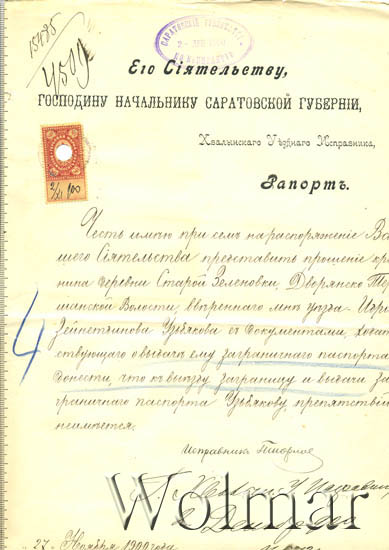 15485
4509
САРАТОВСКОЕ
2 - ДЕК 1900
Его Сіятельству,
ГОСПОДИНУ НАЧАЛЬНИКУ САРАТОВСКОЙ ГУБЕРНІИ,
Хвалынскаго Уѣзднаго Исправника,
Рапортъ.
2/XI 900
Честь имѣю при семъ на распоряженіе Ва
шего Сіятельства представить прошеніе кре
нина деревни Старой Зеленовки, Дворянско Тер
шанской Волости, ввѣреннаго мнѣ уѣзда
Зейнетдинова Узбякова съ документами, хода
ствующаго о выдачѣ ему заграничнаго паспорта
донести, что къ выѣзду заграницу и выдачи за
граничнаго паспорта Узбякову, препятствій
неимѣется.
4
Исправникъ
Wolmar
27 Ноября 1900 года